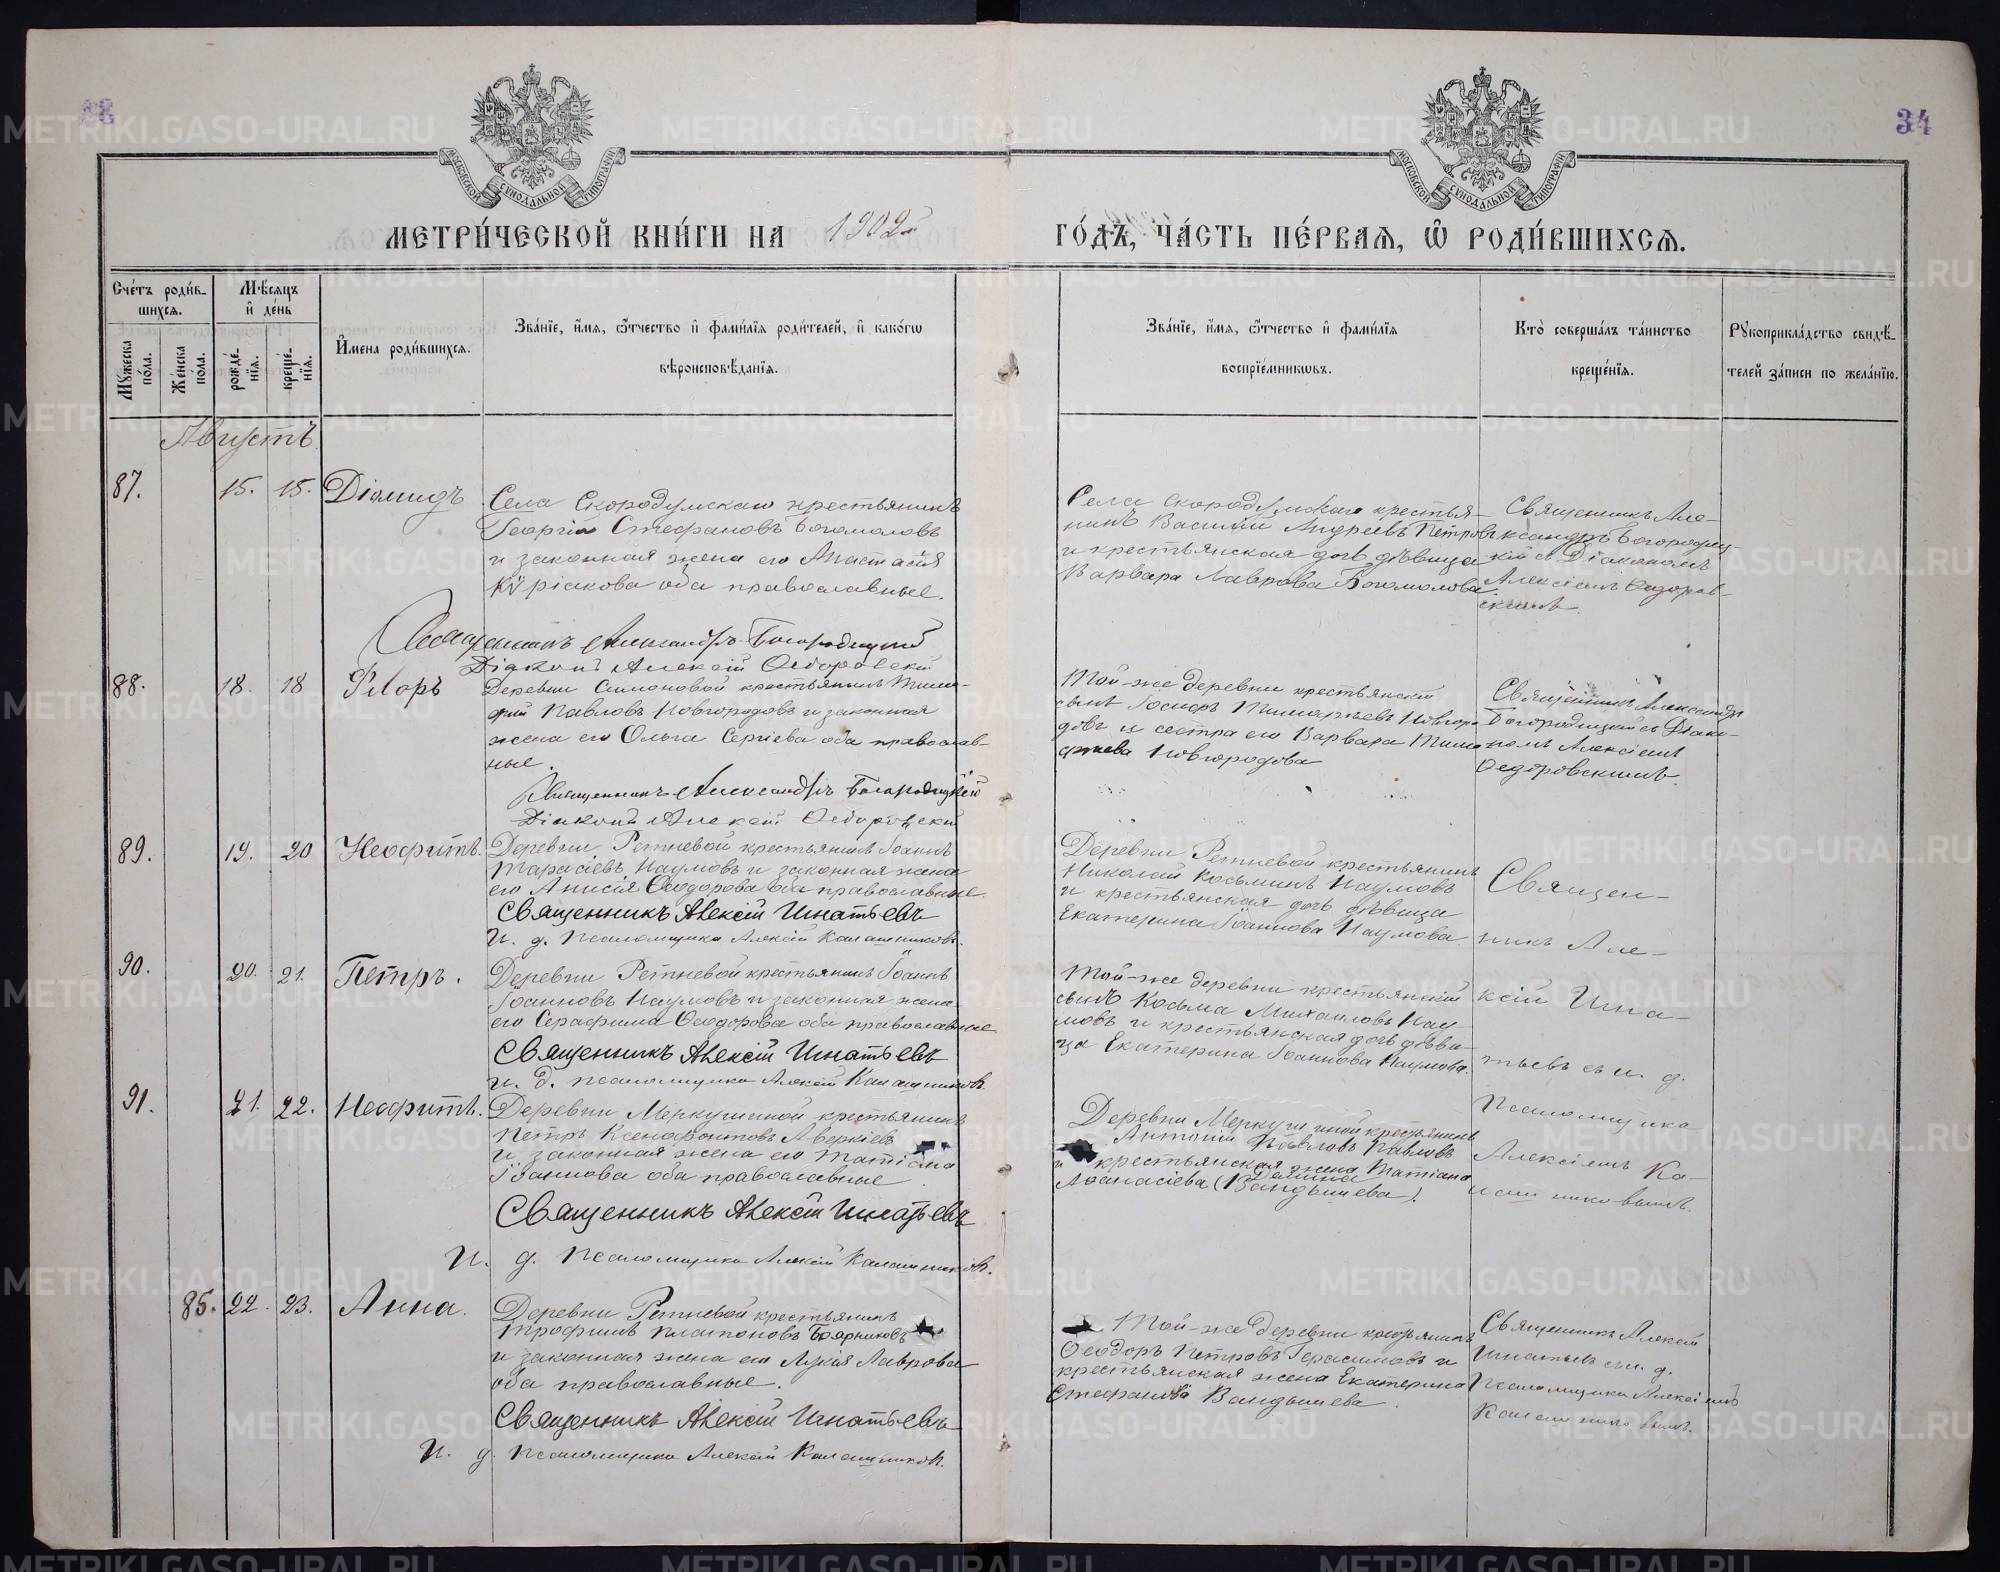 34
МОСКОВСКОЙ СѴНОДАЛЬНОЙ ТИПОГРАФІИ
МОСКОВСКОЙ СѴНОДАЛЬНОЙ ТИПОГРАФІИ
МЕТРИ́ЧЕСКОЙ КНИ́ГИ НА 1902й ГО́ДЪ, ЧА́СТЬ ПЕ́РВАѦ, Ѡ҆ РОДИ́ВШИХСѦ.
Сче́тъ роди́в-
шихсѧ.
Мꙋ́жеска по́ла.
Же́нска по́ла.
Мѣ́сѧцъ и҆ де́нь
рожде́-нїѧ.
креще́-нїѧ.
И҆мена роди́вшихсѧ.
Зва́нїе, и҆́мѧ, ѻ҆́тчество и҆ фами́лїѧ роди́телей, и҆ како́гѡ
вѣроисповѣ́данїѧ.
Зва́нїе, и҆́мѧ, ѻ҆́тчество и҆ фами́лїѧ
воспрїе́мникѡвъ.
Кто̀ соверша́лъ та́инство
креще́нїѧ.
Рꙋкоприкла́дство свидѣ́-
телей за́писи по жела́нїю.
Августъ
87. 15. 15. Діомидъ
Села Скородумскаго крестьянинъ
Георгій Стефановъ Богомоловъ
и законная жена его Анастасія
Кѵріакова оба православные.
Священникъ Александръ Богородицкій
Діаконъ Алексій Ѳедоровскій
Села Скородумскаго крестья-
нинъ Василій Андреевъ Петровъ
и крестьянская дочь дѣвица
Варвара Лаврова Богомолова.
Священникъ Але-
ксандръ Богородиц-
кій съ Діакономъ
Алексіемъ Ѳедоров-
скимъ.
88. 18. 18
Деревни Симоновой крестьянинъ Тимо-
фей Павловъ Новгородовъ и законная
жена его Ольга Сергіева оба православ-
ные.
Священникъ Александръ Богородицкій
Діаконъ Алексій Ѳедоровскій
Той-же деревни крестьянскій
сынъ Тимофѣевъ Новгоро-
довъ и сестра его Варвара Тимо-
фѣева Новгородова
Священникъ Александръ
Богородицкій съ Діако-
номъ Алексіемъ
Ѳедоровскимъ.
89. 19. 20 Неофитъ.
Деревни Ретневой крестьянинъ Іоаннъ
Тарасіевъ Наумовъ и законная жена
его Анисія Ѳеодорова оба православные.
Священникъ Алексій Игнатьевъ
И. д. псаломщика Алексій Калашниковъ.
Деревни Ретневой крестьянинъ
Николай Косьминъ Наумовъ
и крестьянская дочь дѣвица
Екатерина Іоаннова Наумова
Священ-
никъ Але-
ксій Игна-
тьевъ съ и. д.
псаломщика
Алексіемъ Ка-
лашниковымъ.
90. 20. 21. Петръ.
Деревни Ретневой крестьянинъ Іоаннъ
Іоанновъ Наумовъ и законная жена
его Серафима Ѳеодорова оба православные
Священникъ Алексій Игнатьевъ
И. д. псаломщика Алексій Калашниковъ.
Той-же деревни крестьянскій
сынъ Косьма Михаиловъ Нау-
мовъ и крестьянская дочь дѣви-
ца Екатерина Іоаннова Наумова.
91. 21. 22. Неофитъ.
Деревни Меркушиной крестьянинъ
Петръ Ксенофонтовъ Аверкіевъ
и законная жена его Татіана
Іоаннова оба православные.
Священникъ Алексій Игнатьевъ
И. д. псаломщика Алексій Калашниковъ.
Деревни Меркушиной крестьянинъ
Антоній Павловъ Павловъ
и крестьянская жена Татіана
Аѳанасіева (Вандышева).
85. 22. 23. Анна.
Деревни Ретневой крестьянинъ
Трофимъ Платоновъ Боярниковъ
и законная жена его Лукія Лаврова
оба православные.
Священникъ Алексій Игнатьевъ
И. д. псаломщика Алексій Калашниковъ.
Той-же деревни крестьянинъ
Ѳеодоръ Петровъ Герасимовъ и
крестьянская жена Екатерина
Стефанова Вандышева.
Священникъ Алексій
Игнатьевъ съ и. д.
псаломщика Алексіемъ
Калашниковымъ.
METRIKI.GASO-URAL.RU